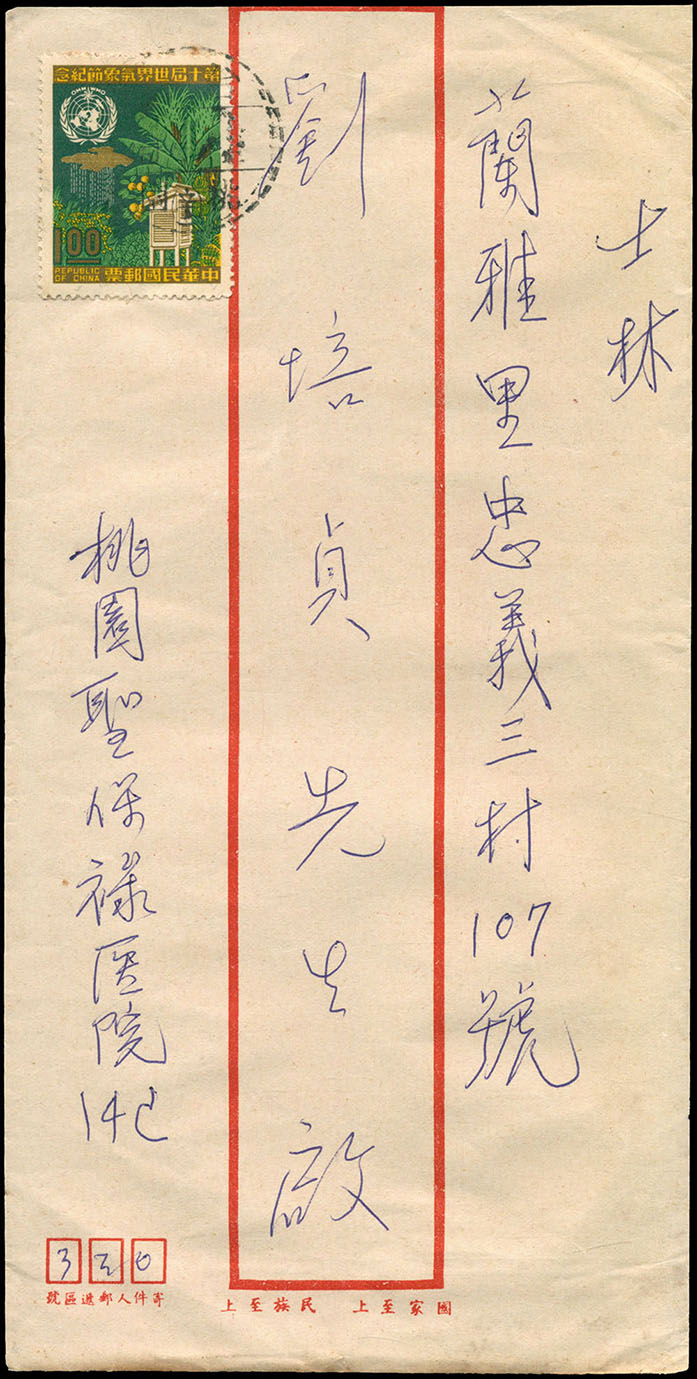 士林
蘭雅里忠義三村107號
劉培貞先生啟
桃園聖保祿医院
330
寄件人郵遞區號
國家至上 民族至上
第十屆世界氣象節紀念
OMM WMO
1.00
REPUBLIC
OF CHINA
中華民國郵票